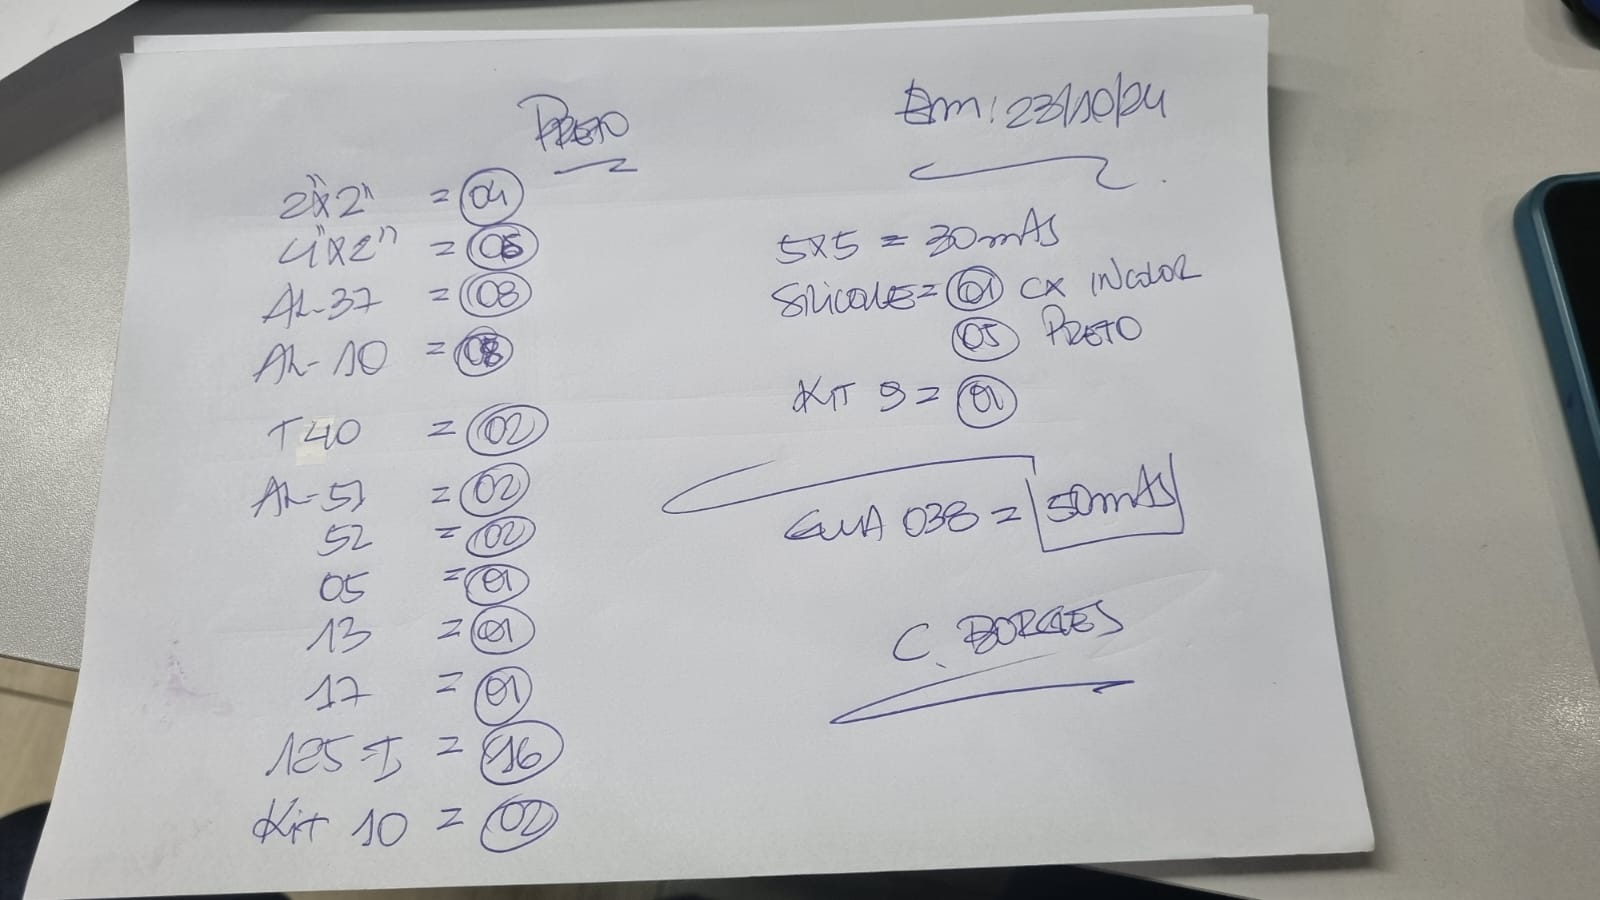 PRETO
2"x2" = 04
4"x2" =
AL-37 = 08
AL-10 =
T 40 = 02
AL-51 = 02
52 = 02
05 = 01
13 = 01
17 = 01
125-I = 16
Kit 10 = 02
Em: 23/10/24
5x5 = 30mts
SILICONE = 01 CX INCOLOR
05 PRETO
KIT 9 = 01
GUIA 038 = 50mts
C. BORGES